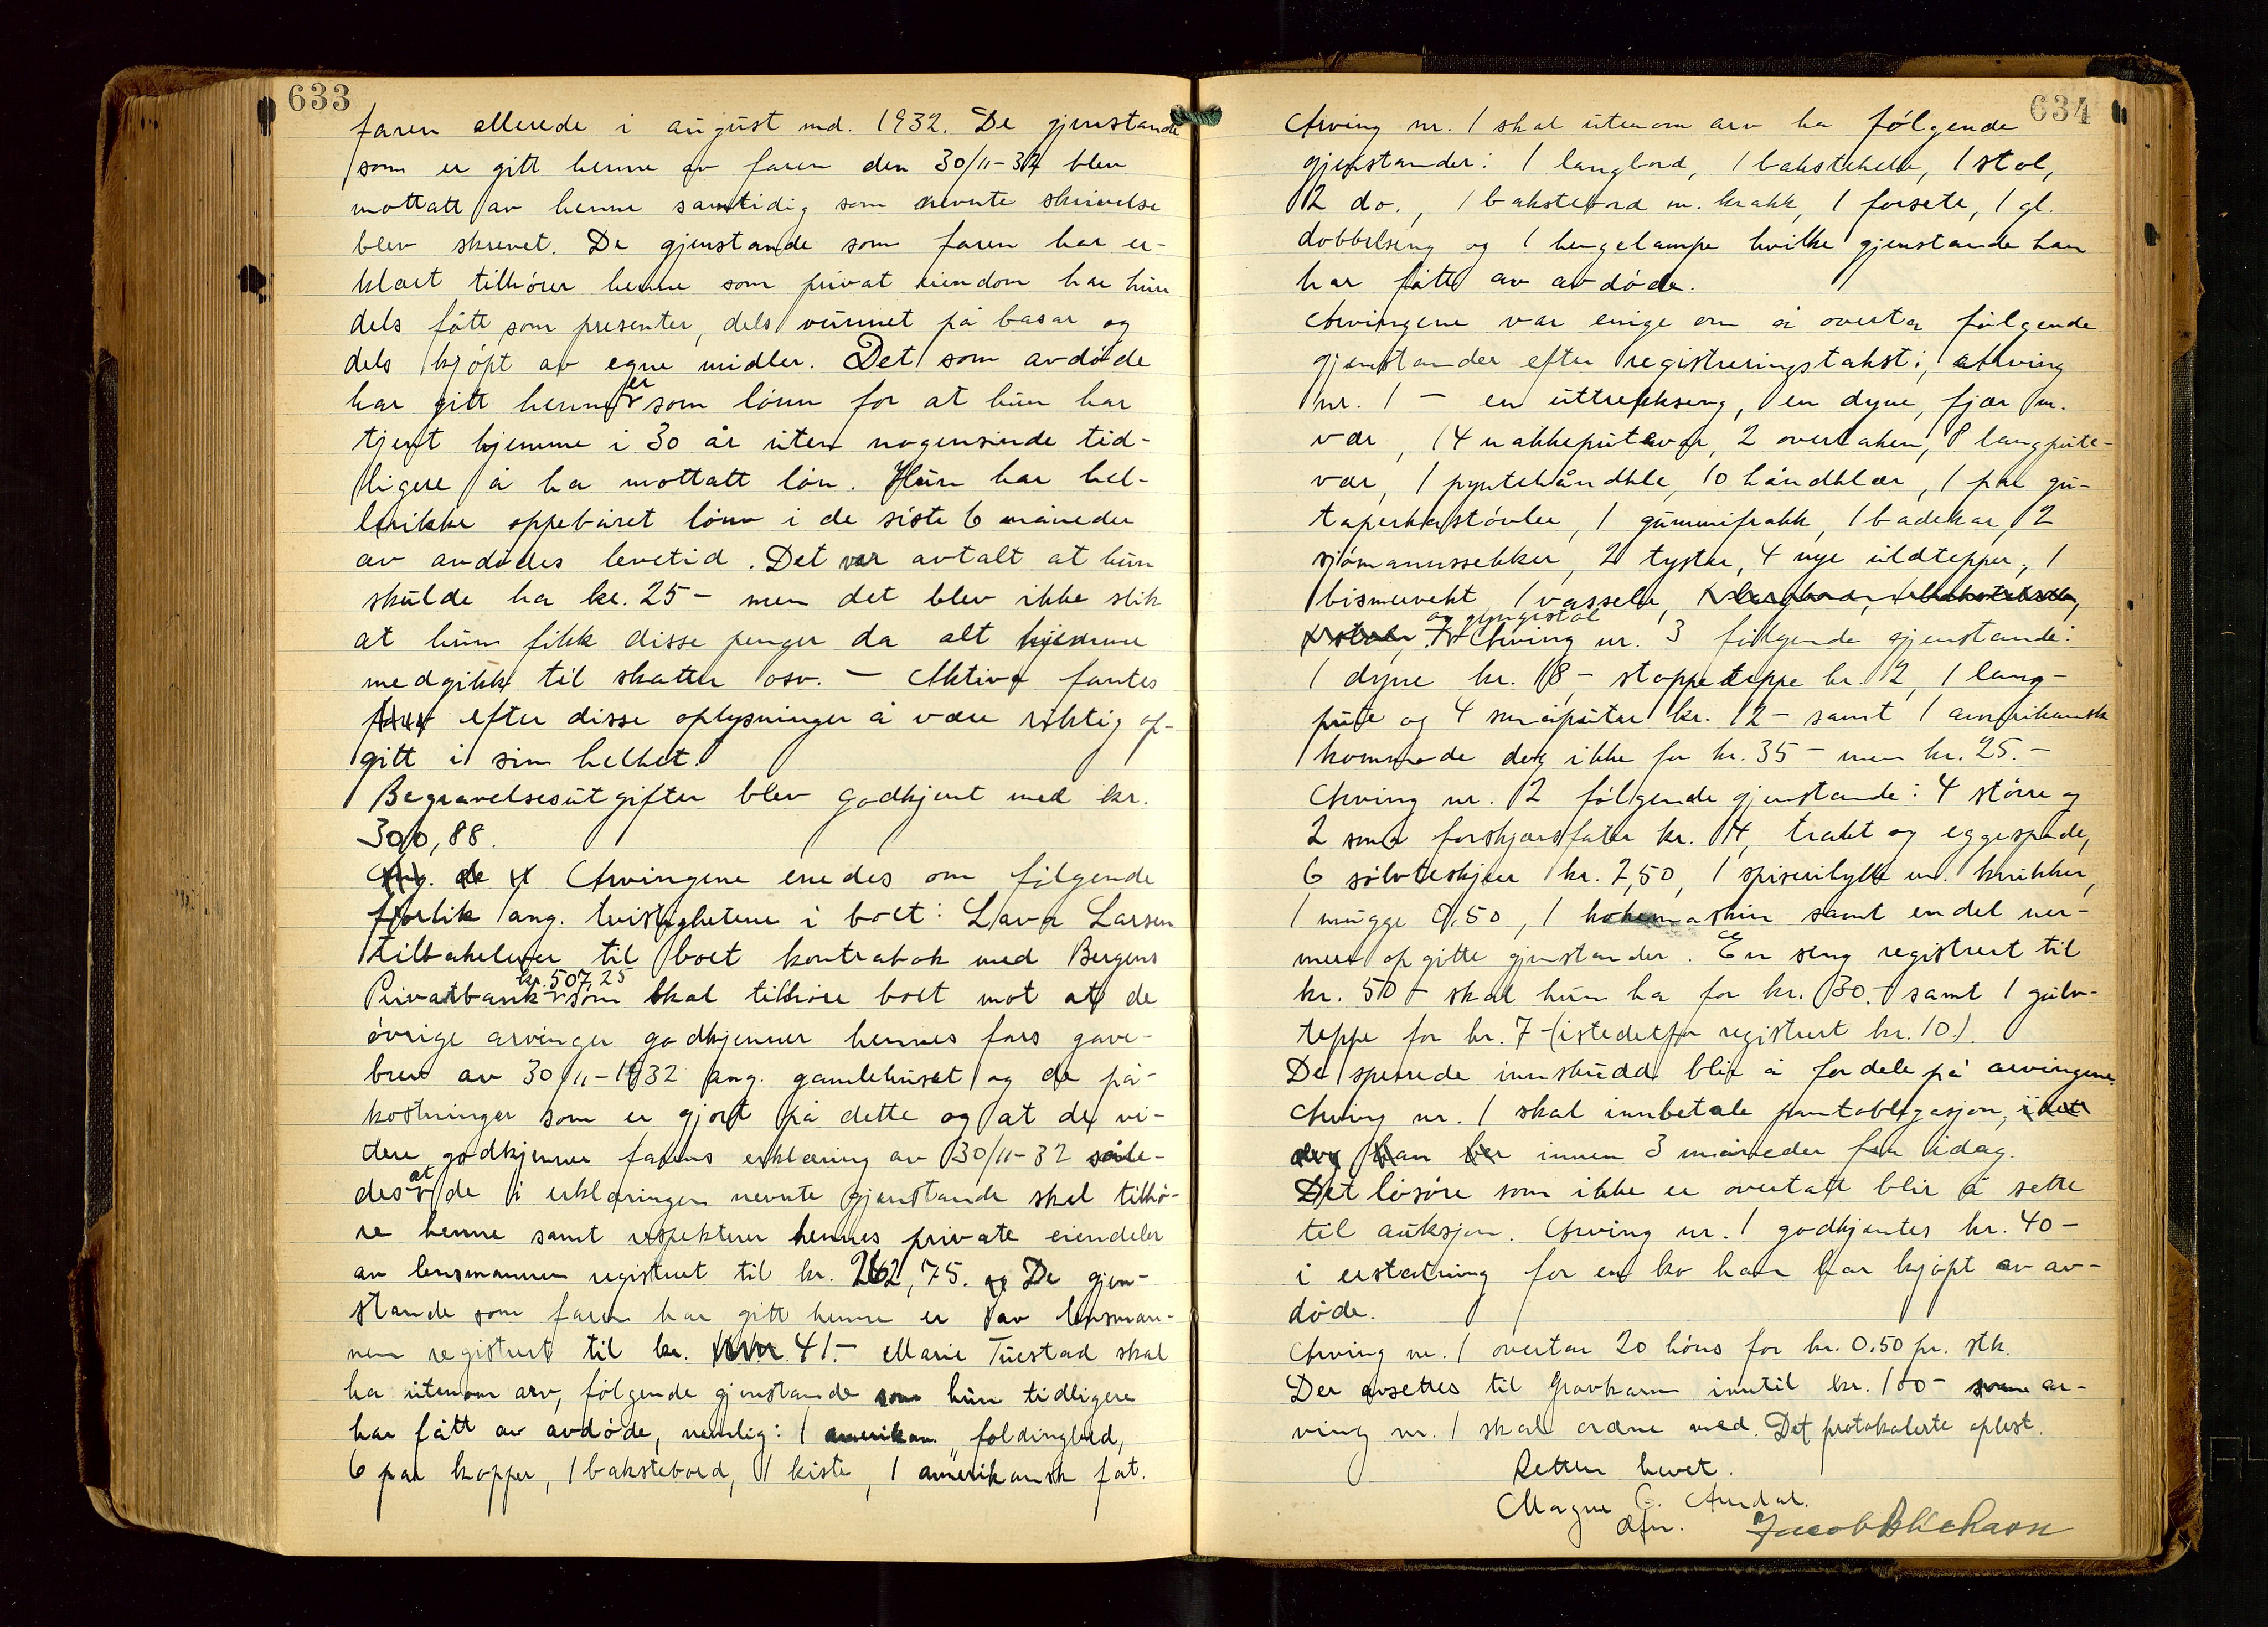 633
faren allerede i august md. 1932. De gjenstande
som er gitt henne av faren den 30/11-32 blev
mottatt av henne samtidig som nevnte skrivelse
blev skrevet. De gjenstande som faren har er-
klært tilhører henne som privat eiendom har hun
dels fått som presenter, dels vunnet på basar og
dels kjøpt av egne midler. Det som avdøde
har gitt henne er som lønn for at hun har
tjent hjemme i 30 år uten nogensinde tid-
ligere å ha mottatt lønn. Hun har hel-
ler ikke oppebåret lønn i de siste 6 måneder
av avdødes levetid. Det var avtalt at hun
skulde ha kr. 25 - men det blev ikke slik
at hun fikk disse penger da alt hjemme
medgikk til skatter osv. - Aktiva fantes
efter disse oplysninger å være riktig op-
gitt i sin helhet.
Begravelsesutgifter blev godkjent med kr.
300,88.
Arvingene enedes om følgende
forlik ang. tvistighetene i boet: Lava Larsen
tilbakelever til boet kontrabok med Bergens
Privatbank kr. 507,25 som skal tilhøre boet mot at de
øvrige arvinger godkjenner hennes fars gave-
brev av 30/11-1932 ang. gamlehuset og de på-
kostninger som er gjort på dette og at de vi-
dere godkjenner farens erklæring av 30/11-32 såle-
des at de i erklæringen nevnte gjenstande skal tilhø-
re henne samt respekterer hennes private eiendeler
av lensmannen registrert til kr. 262,75. De gjen-
stande som faren har gitt henne er av lensman-
nen registrert til kr. 41.- Marie Tuestad skal
ha utenom arv, følgende gjenstande som hun tidligere
har fått av avdøde, nemlig: 1 amerikan. foldingbed,
6 par kopper, 1 bakstebord, 1 kiste, 1 amerikansk fat.
634
Arving nr. 1 skal utenom arv ha følgende
gjenstander: 1 langbord, 1 bakstehelle, 1 stol,
2 do., 1 bakstebord m. krakk, 1 forsete, 1 gl.
dobbelseng og 1 hengelampe hvilke gjenstande han
har fått av avdøde.
Arvingene var enige om å overta følgende
gjenstander efter registreringstakst: arving
nr. 1 - en uttrekkseng, en dyne, fjær m.
vær, 14 nakkeputevar, 2 overlaken, 8 langpute-
vær, 1 pyntehåndkle, 10 håndklær, 1 par gu-
taperkastøvler, 1 gummifrakk, 1 badekar, 2
sjømannssekker, 2 tyster, 4 nye uldtepper, 1
bismervekt 1 vassele,
og gyngestol Arving nr. 3 følgende gjenstande:
1 dyne kr. 18 - stoppeteppe kr. 2, 1 lang-
pute og 4 småputer kr. 12 - samt 1 amerikansk
kommode dog ikke for kr. 35 - men kr. 25.-
Arving nr. 2 følgende gjenstande: 4 større og
2 små forskjærsfater kr. 4, trakt og eggespade,
6 sølvteskjeer kr. 2,50, 1 spiserihylle m. krukker,
1 mugge 0,50, 1 kokemaskin samt endel nær-
mere opgitte gjenstander. En seng registrert til
kr. 50 - skal hun ha for kr. 30.- samt 1 gulv-
teppe for kr. 7 - (istedetfor registrert kr. 10.)
De sperrede innskudd blir å fordele på arvingene.
Arving nr. 1 skal innbetale pantobligasjon,
innen 3 måneder fra idag.
Det løsøre som ikke er overtatt blir å sette
til auksjon. Arving nr. 1 godkjentes kr. 40 -
i erstatning for en ko han har kjøpt av av-
døde.
Arving nr. 1 overtar 20 høns for kr. 0.50 pr. stk.
Der avsettes til gravkarm inntil kr. 100 - som ar-
ving nr. 1 skal ordne med. Det protokolerte oplest.
Retten hevet.
Magne C. Aurdal.
dfm. Jacob